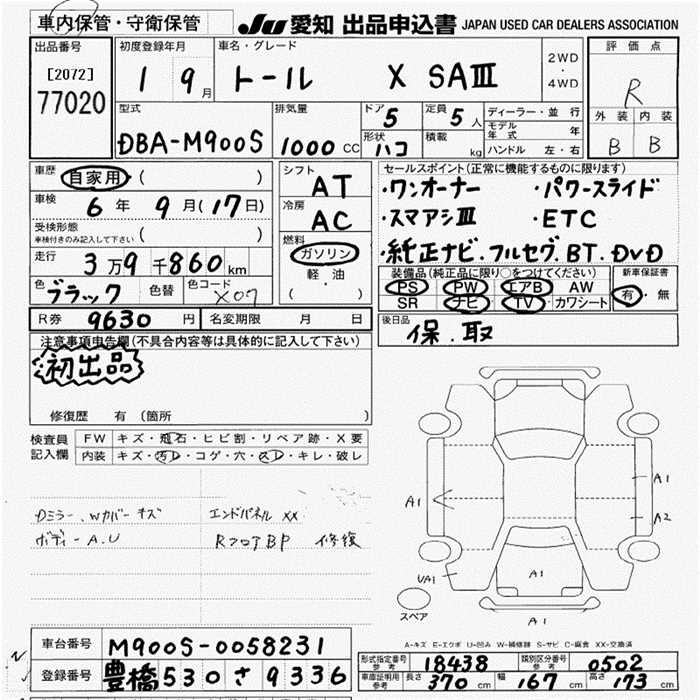 車内保管・守衛保管
JU 愛知 出品申込書 JAPAN USED CAR DEALERS ASSOCIATION
出品番号
[2072]
77020
初度登録年月
1 9月
車名・グレード
トール X SAⅢ
2WD
・
4WD
評価点
R
外装 内装
B B
型式
DBA-M900S
排気量
1000 CC
ドア 5
形状 ハコ
定員 5人
積載 kg
ディーラー・並行
モデル年式 年
ハンドル 左・右
車歴 自家用 ( )
車検 6年 9月(17日)
受検形態
車検付きのみ記入して下さい ( )
走行 3万9千860km
色 ブラック 色替 色コード X07
シフト AT
冷房 AC
燃料
ガソリン
軽・油
( )
セールスポイント(正常に機能するものに限ります)
・ワンオーナー ・パワースライド
・スマアシⅢ ・ETC
・純正ナビ.フルセグ.BT.DVD
装備品(純正品に限り○をつけてください) 新車保証書
PS PW エアB AW
SR ナビ TV カワシート
有・無
R券 9630円 名変期限 月 日
後日品
保.取
注意事項申告欄(不具合内容等は具体的に記入して下さい)
初出品
修復歴 有 (箇所
検査員記入欄
FW キズ・飛石・ヒビ割・リペア跡・X要
内装 キズ・汚レ・コゲ・穴・スレ・キレ・破レ
Dミラー.Wカバーキズ エンドパネル XX
ボディーA.U RフロアBP 修復
A1
A1
A2
UA1
A1
A1
スペア
A-キズ E-エクボ U-凹み W-補修跡 S-サビ C-腐食 XX-交換済
車台番号 M900S-0058231
登録番号 豊橋530さ9336
形式指定番号 参考 18438 類別区分番号 参考 0502
車庫証明用 参考 長さ 370cm 幅 167cm 高さ 173cm